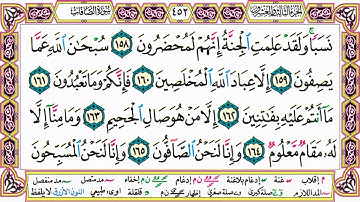 سورة الصافات ٤٥٢ الجزء الثالث والعشرون
نَسَبًا ۚ وَلَقَدْ عَلِمَتِ ٱلْجِنَّةُ إِنَّهُمْ لَمُحْضَرُونَ ١٥٨ سُبْحَٰنَ ٱللَّهِ عَمَّا
يَصِفُونَ ١٥٩ إِلَّا عِبَادَ ٱللَّهِ ٱلْمُخْلَصِينَ ١٦٠ فَإِنَّكُمْ وَمَا تَعْبُدُونَ ١٦١
مَآ أَنتُمْ عَلَيْهِ بِفَٰتِنِينَ ١٦٢ إِلَّا مَنْ هُوَ صَالِ ٱلْجَحِيمِ ١٦٣ وَمَا مِنَّآ إِلَّا
لَهُۥ مَقَامٌ مَّعْلُومٌ ١٦٤ وَإِنَّا لَنَحْنُ ٱلصَّآفُّونَ ١٦٥ وَإِنَّا لَنَحْنُ ٱلْمُسَبِّحُونَ